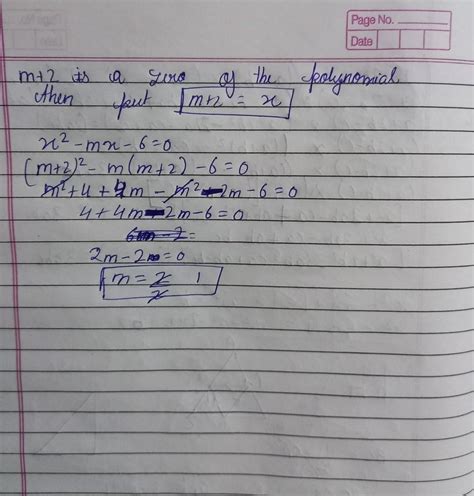 Page No.
Date
m+2 is a zero of the polynomial
then put m+2 = x
x² - mx - 6 = 0
(m+2)² - m(m+2) - 6 = 0
m² + 4 + 4m - m² - 2m - 6 = 0
4 + 4m - 2m - 6 = 0
6m - 2 =
2m - 2 = 0
m = 2/2 1